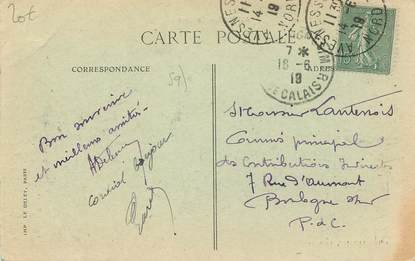 20€
CARTE POSTALE
CORRESPONDANCE
59/
AVESNES
11
14-6
19
NORD
AVESNES
11 30
-6
19
NORD
7 *
16-6
19
CALAIS
15
Bon souvenir
et meilleures amitiés
cordial bonjour
Monsieur Lantenois
Commis principal
des Contributions Indirectes
7 Rue d'Aumont
Boulogne s/mer
P-d-C.
IMP. LE DELEY, PARIS